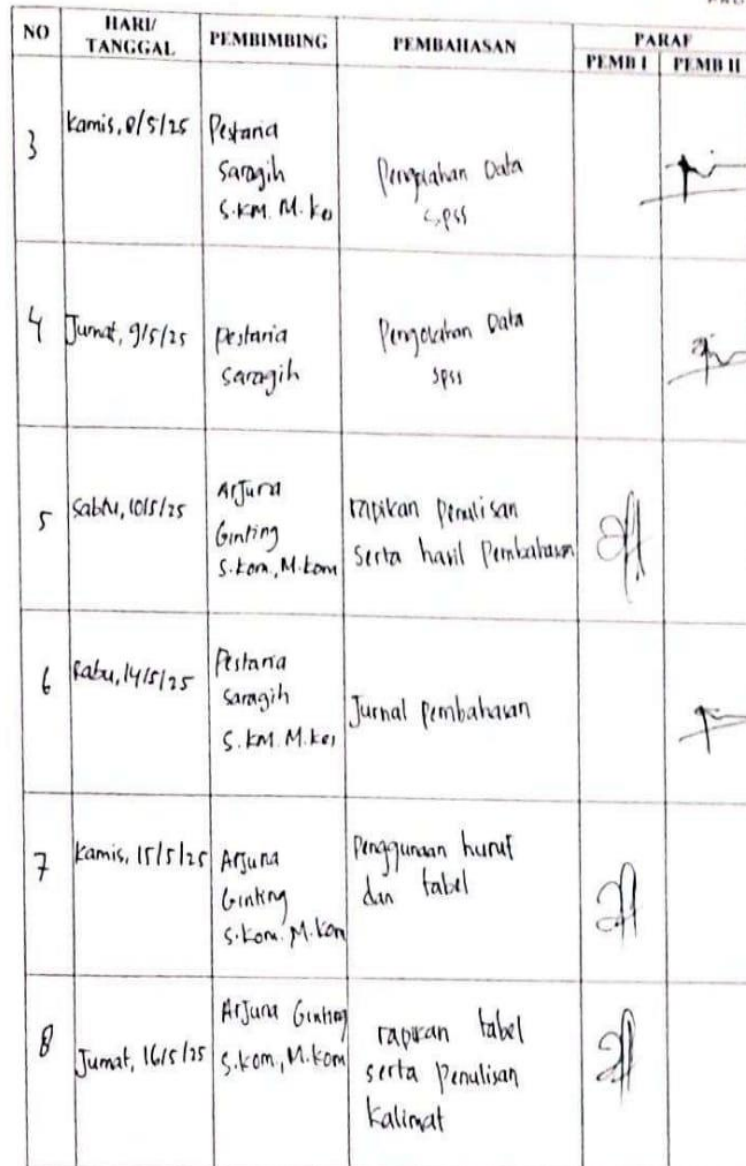 NO
HARI/
TANGGAL
PEMBIMBING
PEMBAHASAN
PARAF
PEMB I
PEMB II
3
Kamis, 8/5/25
Pestaria
Saragih
S.KM. M.Kes
Pengolahan Data
SPSS
4
Jumat, 9/5/25
Pestaria
Saragih
Pengolahan Data
SPSS
5
Sabtu, 10/5/25
Arjuna
Ginting
S.Kom., M.Kom
rapikan Penulisan
serta hasil Pembahasan
6
Rabu, 14/5/25
Pestaria
Saragih
S.KM. M.Kes
Jurnal Pembahasan
7
Kamis, 15/5/25
Arjuna
Ginting
S.Kom. M.Kom
Penggunaan huruf
dan tabel
8
Jumat, 16/5/25
Arjuna Ginting
S.Kom., M.Kom
rapikan tabel
serta Penulisan
Kalimat